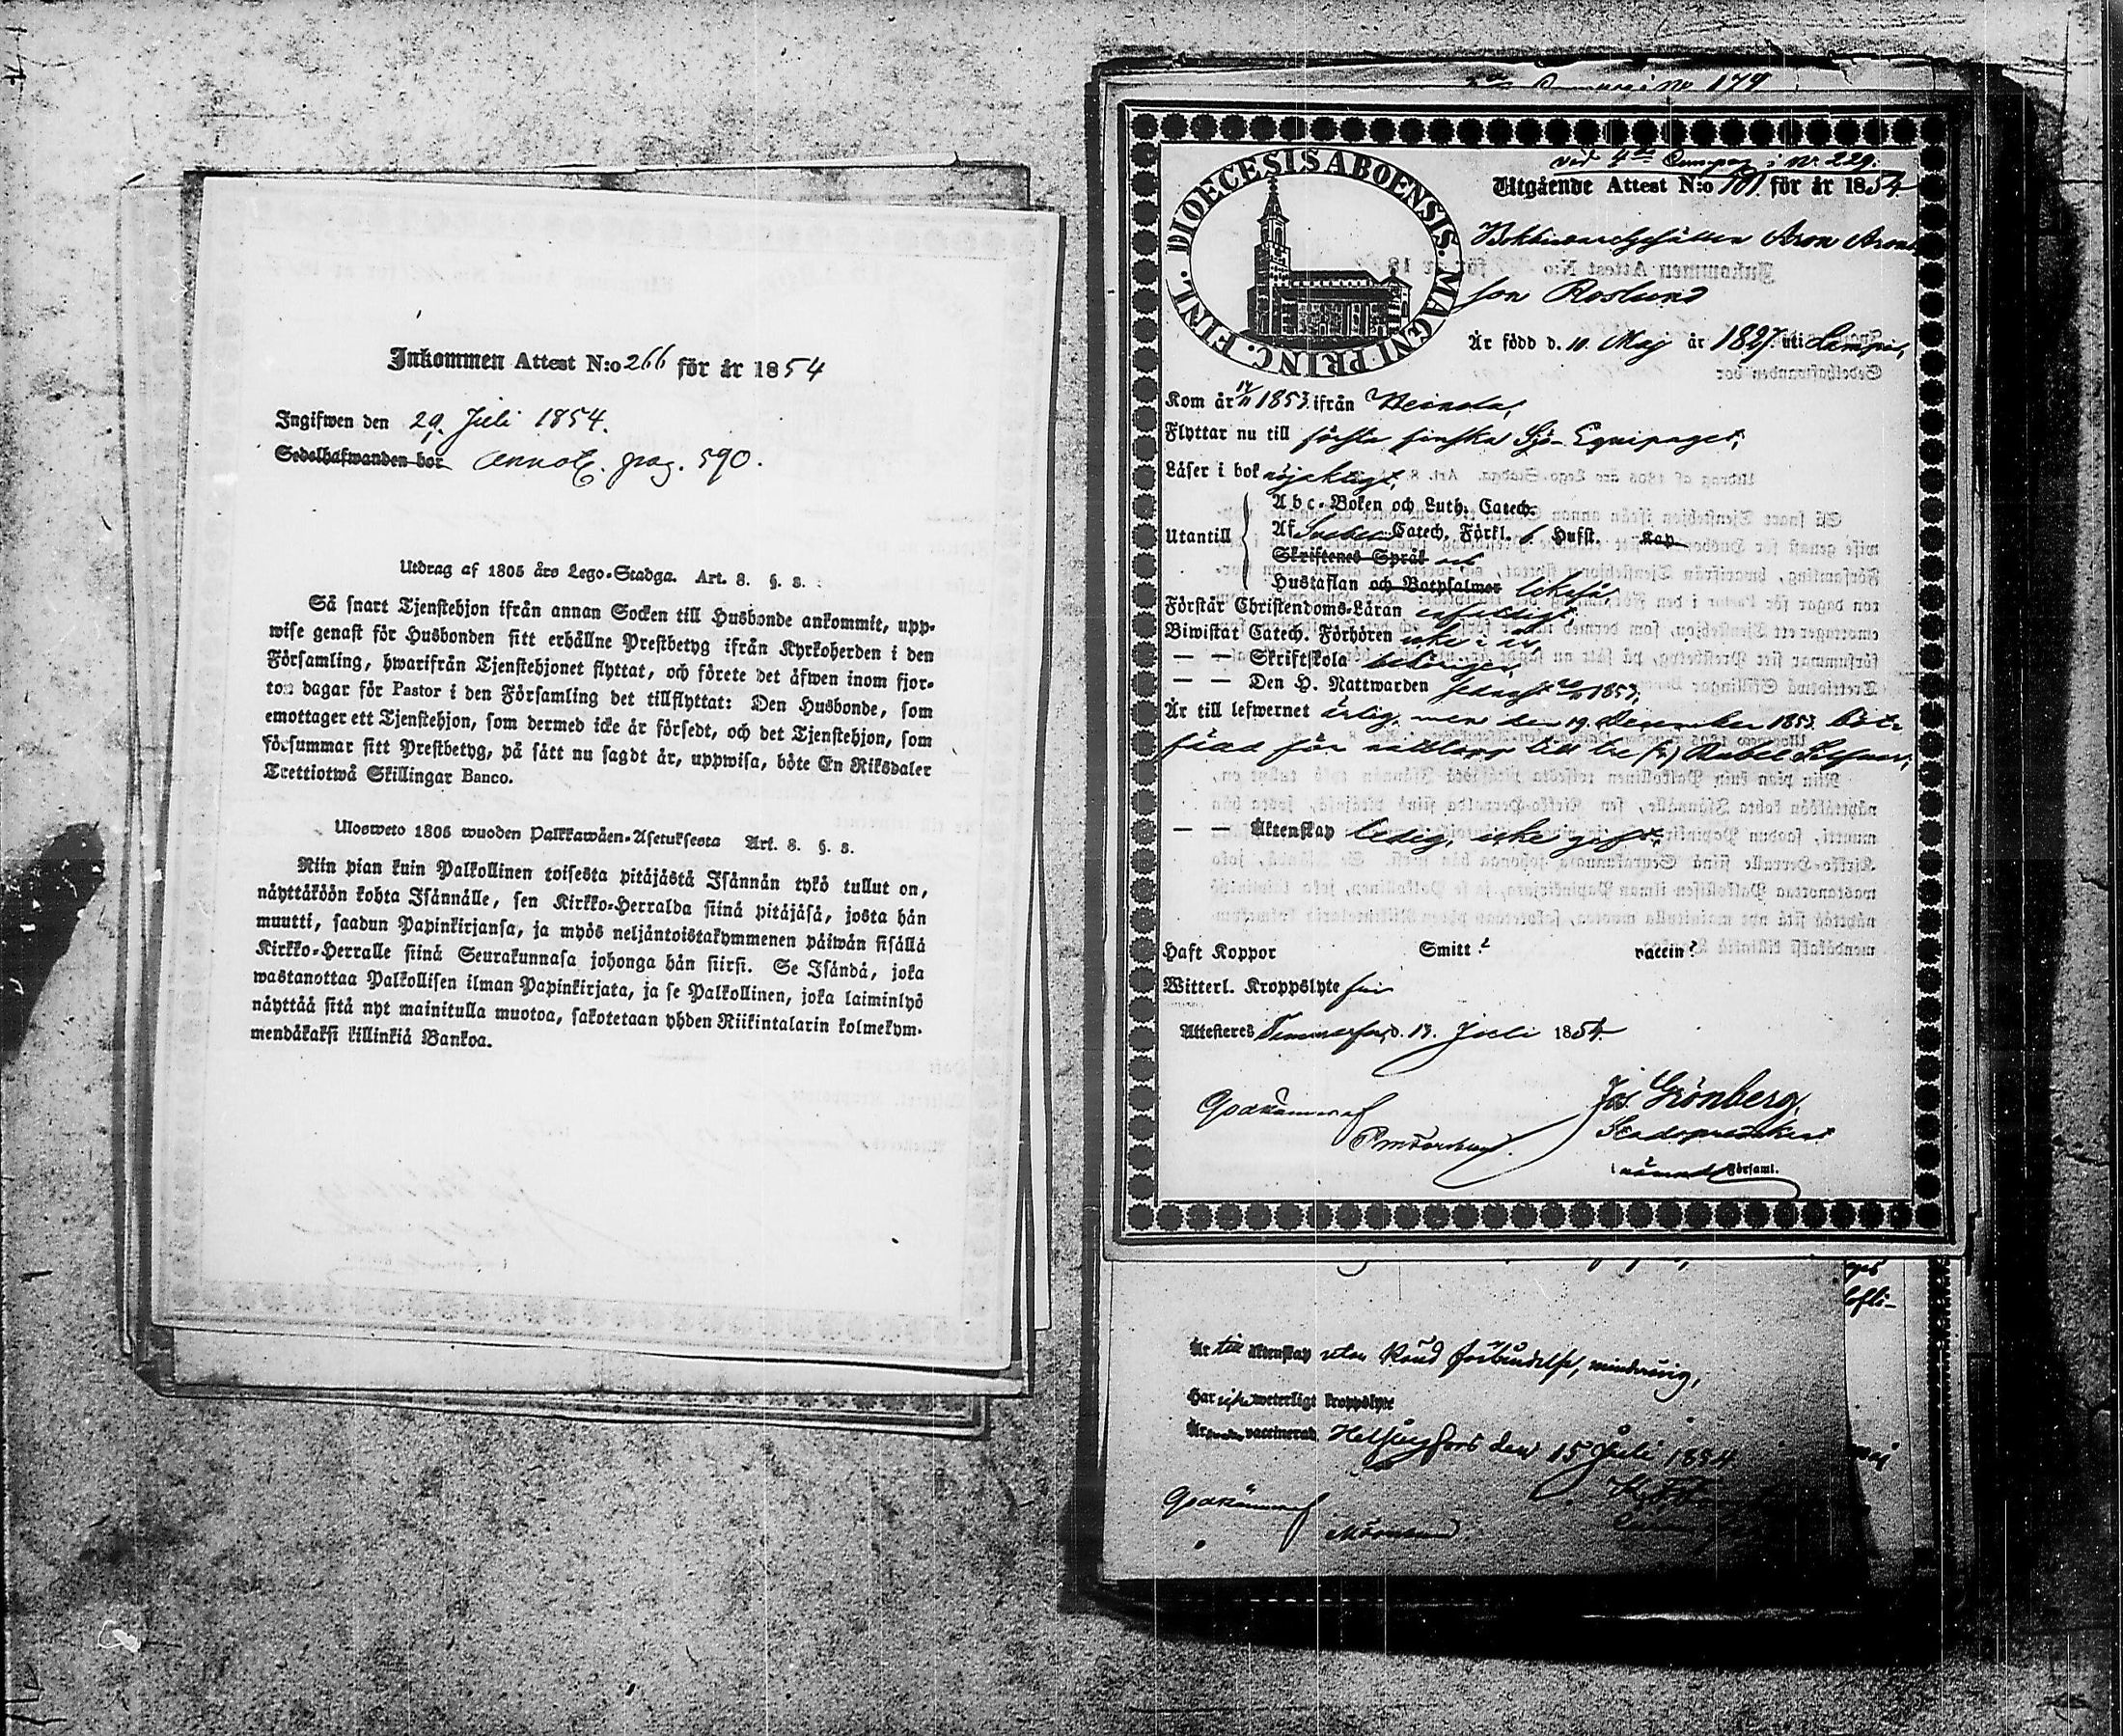 Inkommen Attest N:o 266 för år 1854
Ingifwen den 29. Juli 1854.
Sedelhafwanden bor annot. pag. 590.
Utdrag af 1805 års Lego-Stadga. Art. 8. §. 8.
Så snart Tjenstehjon ifrån annan Socken till Husbonde ankommit, upp-
wise genast för Husbonden sitt erhållne Prestbetyg ifrån Kyrkoherden i den
Församling, hwarifrån Tjenstehjonet flyttat, och förete det äfwen inom fjor-
ton dagar för Pastor i den Församling det tillflyttat: Den Husbonde, som
emottager ett Tjenstehjon, som dermed icke är försedt, och det Tjenstehjon, som
försummar sitt Prestbetyg, på sätt nu sagdt är, uppwisa, böte En Riksdaler
Trettiotwå Skillingar Banco.
Ulosweto 1805 wuoden Palkkawäen-Asetuksesta Art. 8. §. 8.
Niin pian kuin Palkollinen toisesta pitäjästä Isännän tykö tullut on,
näyttäköön kohta Isännälle, sen Kirkko-Herralda siinä pitäjäsä, josta hän
muutti, saadun Papinkirjansa, ja myös neljäntoistakymmenen päiwän sisällä
Kirkko-Herralle siinä Seurakunnasa johonga hän siirsi. Se Isändä, joka
wastanottaa Palkollisen ilman Papinkirjata, ja se Palkollinen, joka laiminlyö
näyttää sitä nyt mainitulla muotoa, sakotetaan yhden Riikintalarin kolmekym-
mendäkaksi killinkiä Bankoa.
179
DIOECESIS ABOENSIS. MAGNI PRINC. FINL.
vid 4de Compag. i N. 229.
Utgående Attest N:o 101. för år 1854
Aron Arons
son Roslund
Är född d. 10 Maj år 1827. uti Lempis,
Kom år 14/11 1853. ifrån Heinola,
Flyttar nu till första finska Sjö-Equipaget,
Läser i bok nöjaktigt,
Utantill
Abc-Boken och Luth. Catech.
Af Svebel. Catech. Förkl. 6. Hufst. Kap
Skriftenes Språk och
Hustaflan och Botpsalmer likaså
Förstår Christendoms-Läran
Biwistat Catech. Förhören icke i år,
— — Skriftskola behörigen,
— — Den H. Nattwarden sednast 20/11 1853,
Är till lefwernet ärlig, men den 19 December 1853 böt-
fäld för till tre (3) Rubel Silfver,
— — Äktenskap ledig, icke
Haft Koppor Smitt? vaccin?
Witterl. Kroppslyte fri
Attesteras Tammerfors d. 13. Juli 1854.
Godkännes af
Jos. Grönberg,
Stadspredikant
i nämnde Församl.
Är till Äktenskap utan känd förbindelse, minderårig,
Har icke weterligt kroppslyte
Är vaccinerad Helsingfors den 15 Juli 1854
Godkännes af